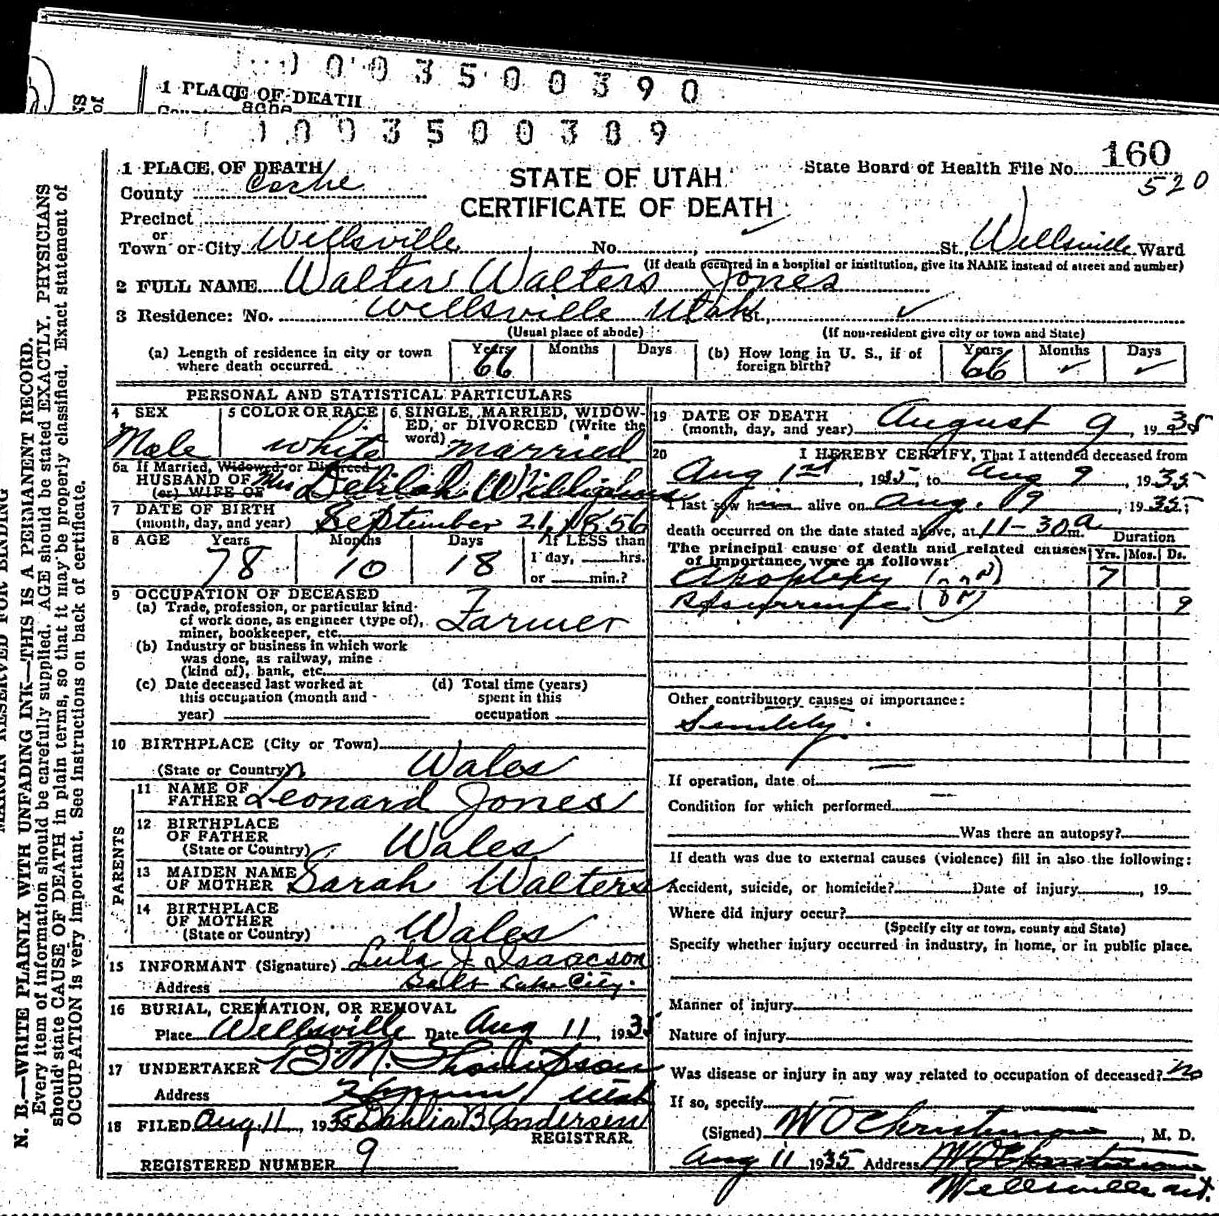 0003500390
1 PLACE OF DEATH
0003500389
1 PLACE OF DEATH
County Cache
STATE OF UTAH
CERTIFICATE OF DEATH
State Board of Health File No. 160
520
Precinct
or
Town or City Wellsville No. St. Wellsville Ward
(If death occurred in a hospital or institution, give its NAME instead of street and number)
2 FULL NAME Walter Walters Jones
3 Residence: No. Wellsville Utah
(Usual place of abode) (If non-resident give city or town and State)
(a) Length of residence in city or town where death occurred. Years 66 Months Days
(b) How long in U. S., if of foreign birth? Years 66 Months ✓ Days ✓
PERSONAL AND STATISTICAL PARTICULARS
4 SEX Male
5 COLOR OR RACE white
6 SINGLE, MARRIED, WIDOWED, or DIVORCED (Write the word) married
6a If Married, Widowed, or Divorced
HUSBAND OF Mrs Delilah
(or) WIFE OF
7 DATE OF BIRTH
(month, day, and year) September 21, 1856
8 AGE Years 78 Months 10 Days 18 If LESS than
1 day, hrs.
or min.?
9 OCCUPATION OF DECEASED
(a) Trade, profession, or particular kind of work done, as engineer (type of), miner, bookkeeper, etc. Farmer
(b) Industry or business in which work was done, as railway, mine (kind of), bank, etc.
(c) Date deceased last worked at this occupation (month and year)
(d) Total time (years) spent in this occupation
10 BIRTHPLACE (City or Town)
(State or Country) Wales
PARENTS
11 NAME OF FATHER Leonard Jones
12 BIRTHPLACE OF FATHER
(State or Country) Wales
13 MAIDEN NAME OF MOTHER Sarah Walters
14 BIRTHPLACE OF MOTHER
(State or Country) Wales
15 INFORMANT (Signature) Lula J. Isaacson
Address Salt Lake City.
16 BURIAL, CREMATION, OR REMOVAL
Place Wellsville Date Aug 11, 1935
17 UNDERTAKER B.M. Thompson
Address Utah
18 FILED Aug 11, 1935 Dahlia B Andersen
REGISTRAR
REGISTERED NUMBER 9
19 DATE OF DEATH
(month, day, and year) August 9, 1935
20 I HEREBY CERTIFY, That I attended deceased from
Aug 1st, 1935, to Aug 9, 1935
I last saw him alive on Aug. 9, 1935;
death occurred on the date stated above, at 11-30a m.
Duration
The principal cause of death and related causes of importance were as follows: Yrs. Mos. Ds.
Apoplexy 7
9
Other contributory causes of importance:
Senility
If operation, date of
Condition for which performed
Was there an autopsy?
If death was due to external causes (violence) fill in also the following:
Accident, suicide, or homicide? Date of injury , 19
Where did injury occur?
(Specify city or town, county and State)
Specify whether injury occurred in industry, in home, or in public place.
Manner of injury
Nature of injury
Was disease or injury in any way related to occupation of deceased? no
If so, specify
(Signed) W O Christenson, M. D.
Aug 11 1935 Address W O Christenson
Wellsville Ut.
MARGIN RESERVED FOR BINDING
N. B.—WRITE PLAINLY WITH UNFADING INK—THIS IS A PERMANENT RECORD.
Every item of information should be carefully supplied. AGE should be stated EXACTLY. PHYSICIANS
should state CAUSE OF DEATH in plain terms, so that it may be properly classified. Exact statement of
OCCUPATION is very important. See instructions on back of certificate.